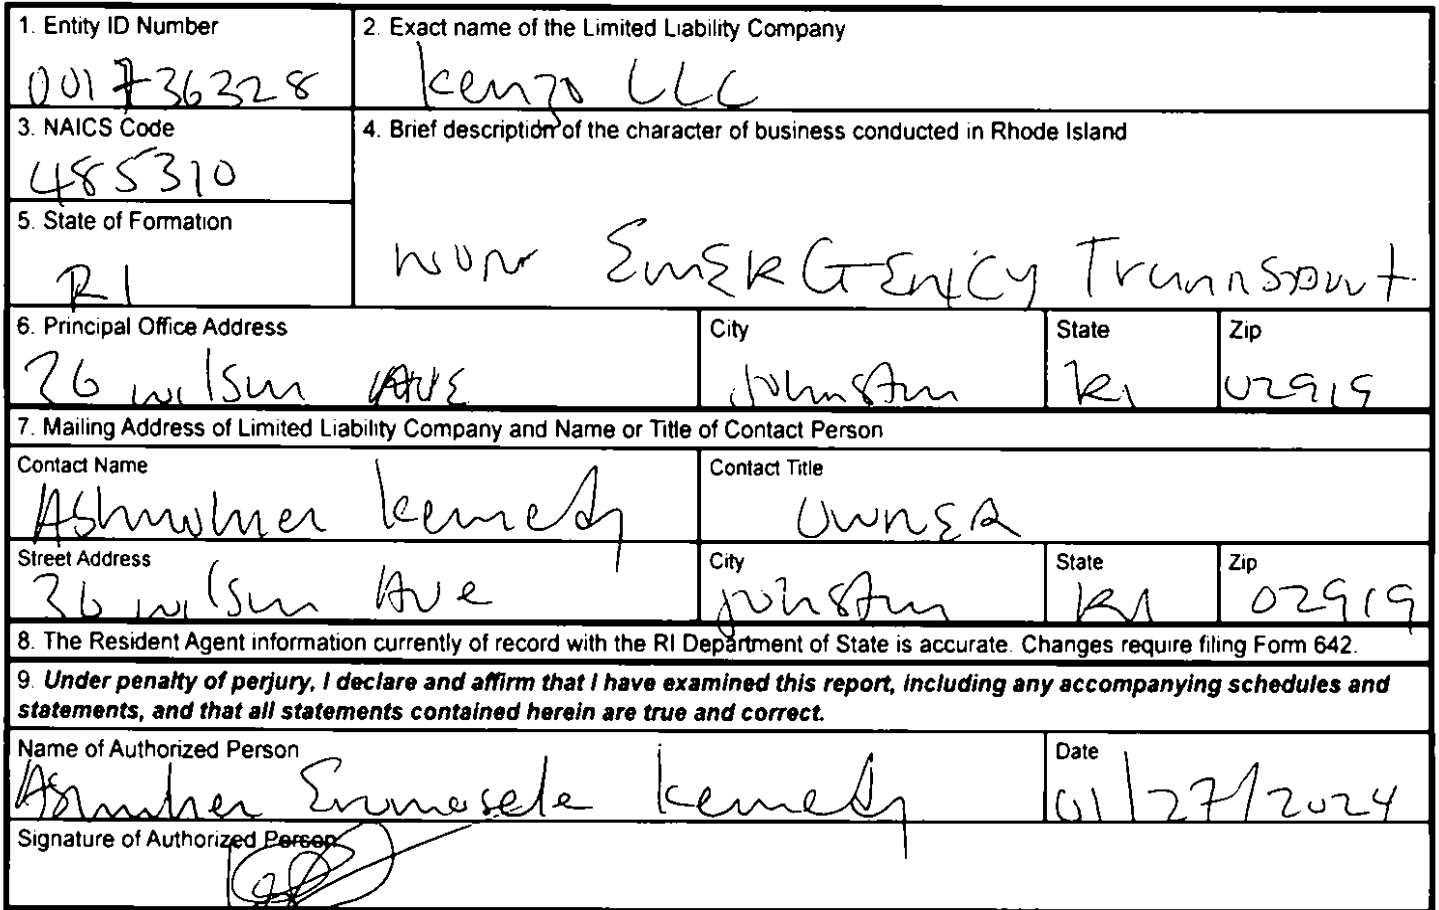 1. Entity ID Number
001736328
2. Exact name of the Limited Liability Company
Kenzo LLC
3. NAICS Code
485310
4. Brief description of the character of business conducted in Rhode Island
NON EMERGENCY Transport
5. State of Formation
RI
6. Principal Office Address
36 Wilson AVE
City
Johnston
State
RI
Zip
02919
7. Mailing Address of Limited Liability Company and Name or Title of Contact Person
Contact Name
Kennedy
Contact Title
OWNER
Street Address
36 Wilson Ave
City
Johnston
State
RI
Zip
02919
8. The Resident Agent information currently of record with the RI Department of State is accurate. Changes require filing Form 642.
9. Under penalty of perjury, I declare and affirm that I have examined this report, including any accompanying schedules and
statements, and that all statements contained herein are true and correct.
Name of Authorized Person
Kennedy
Date
01/27/2024
Signature of Authorized Person